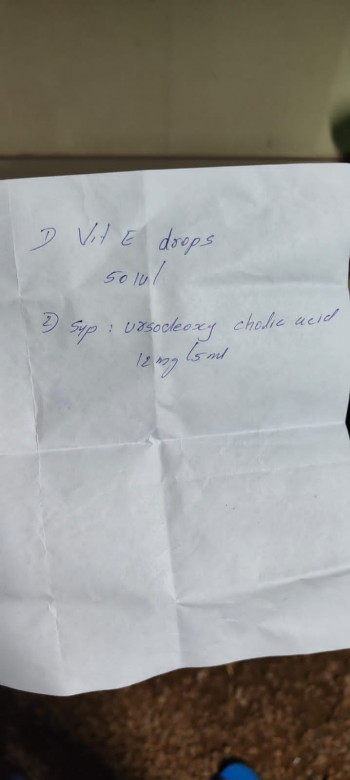 1) Vit E drops
50 IU/
2) Syp : Ursodeoxy cholic acid
12 mg/5ml